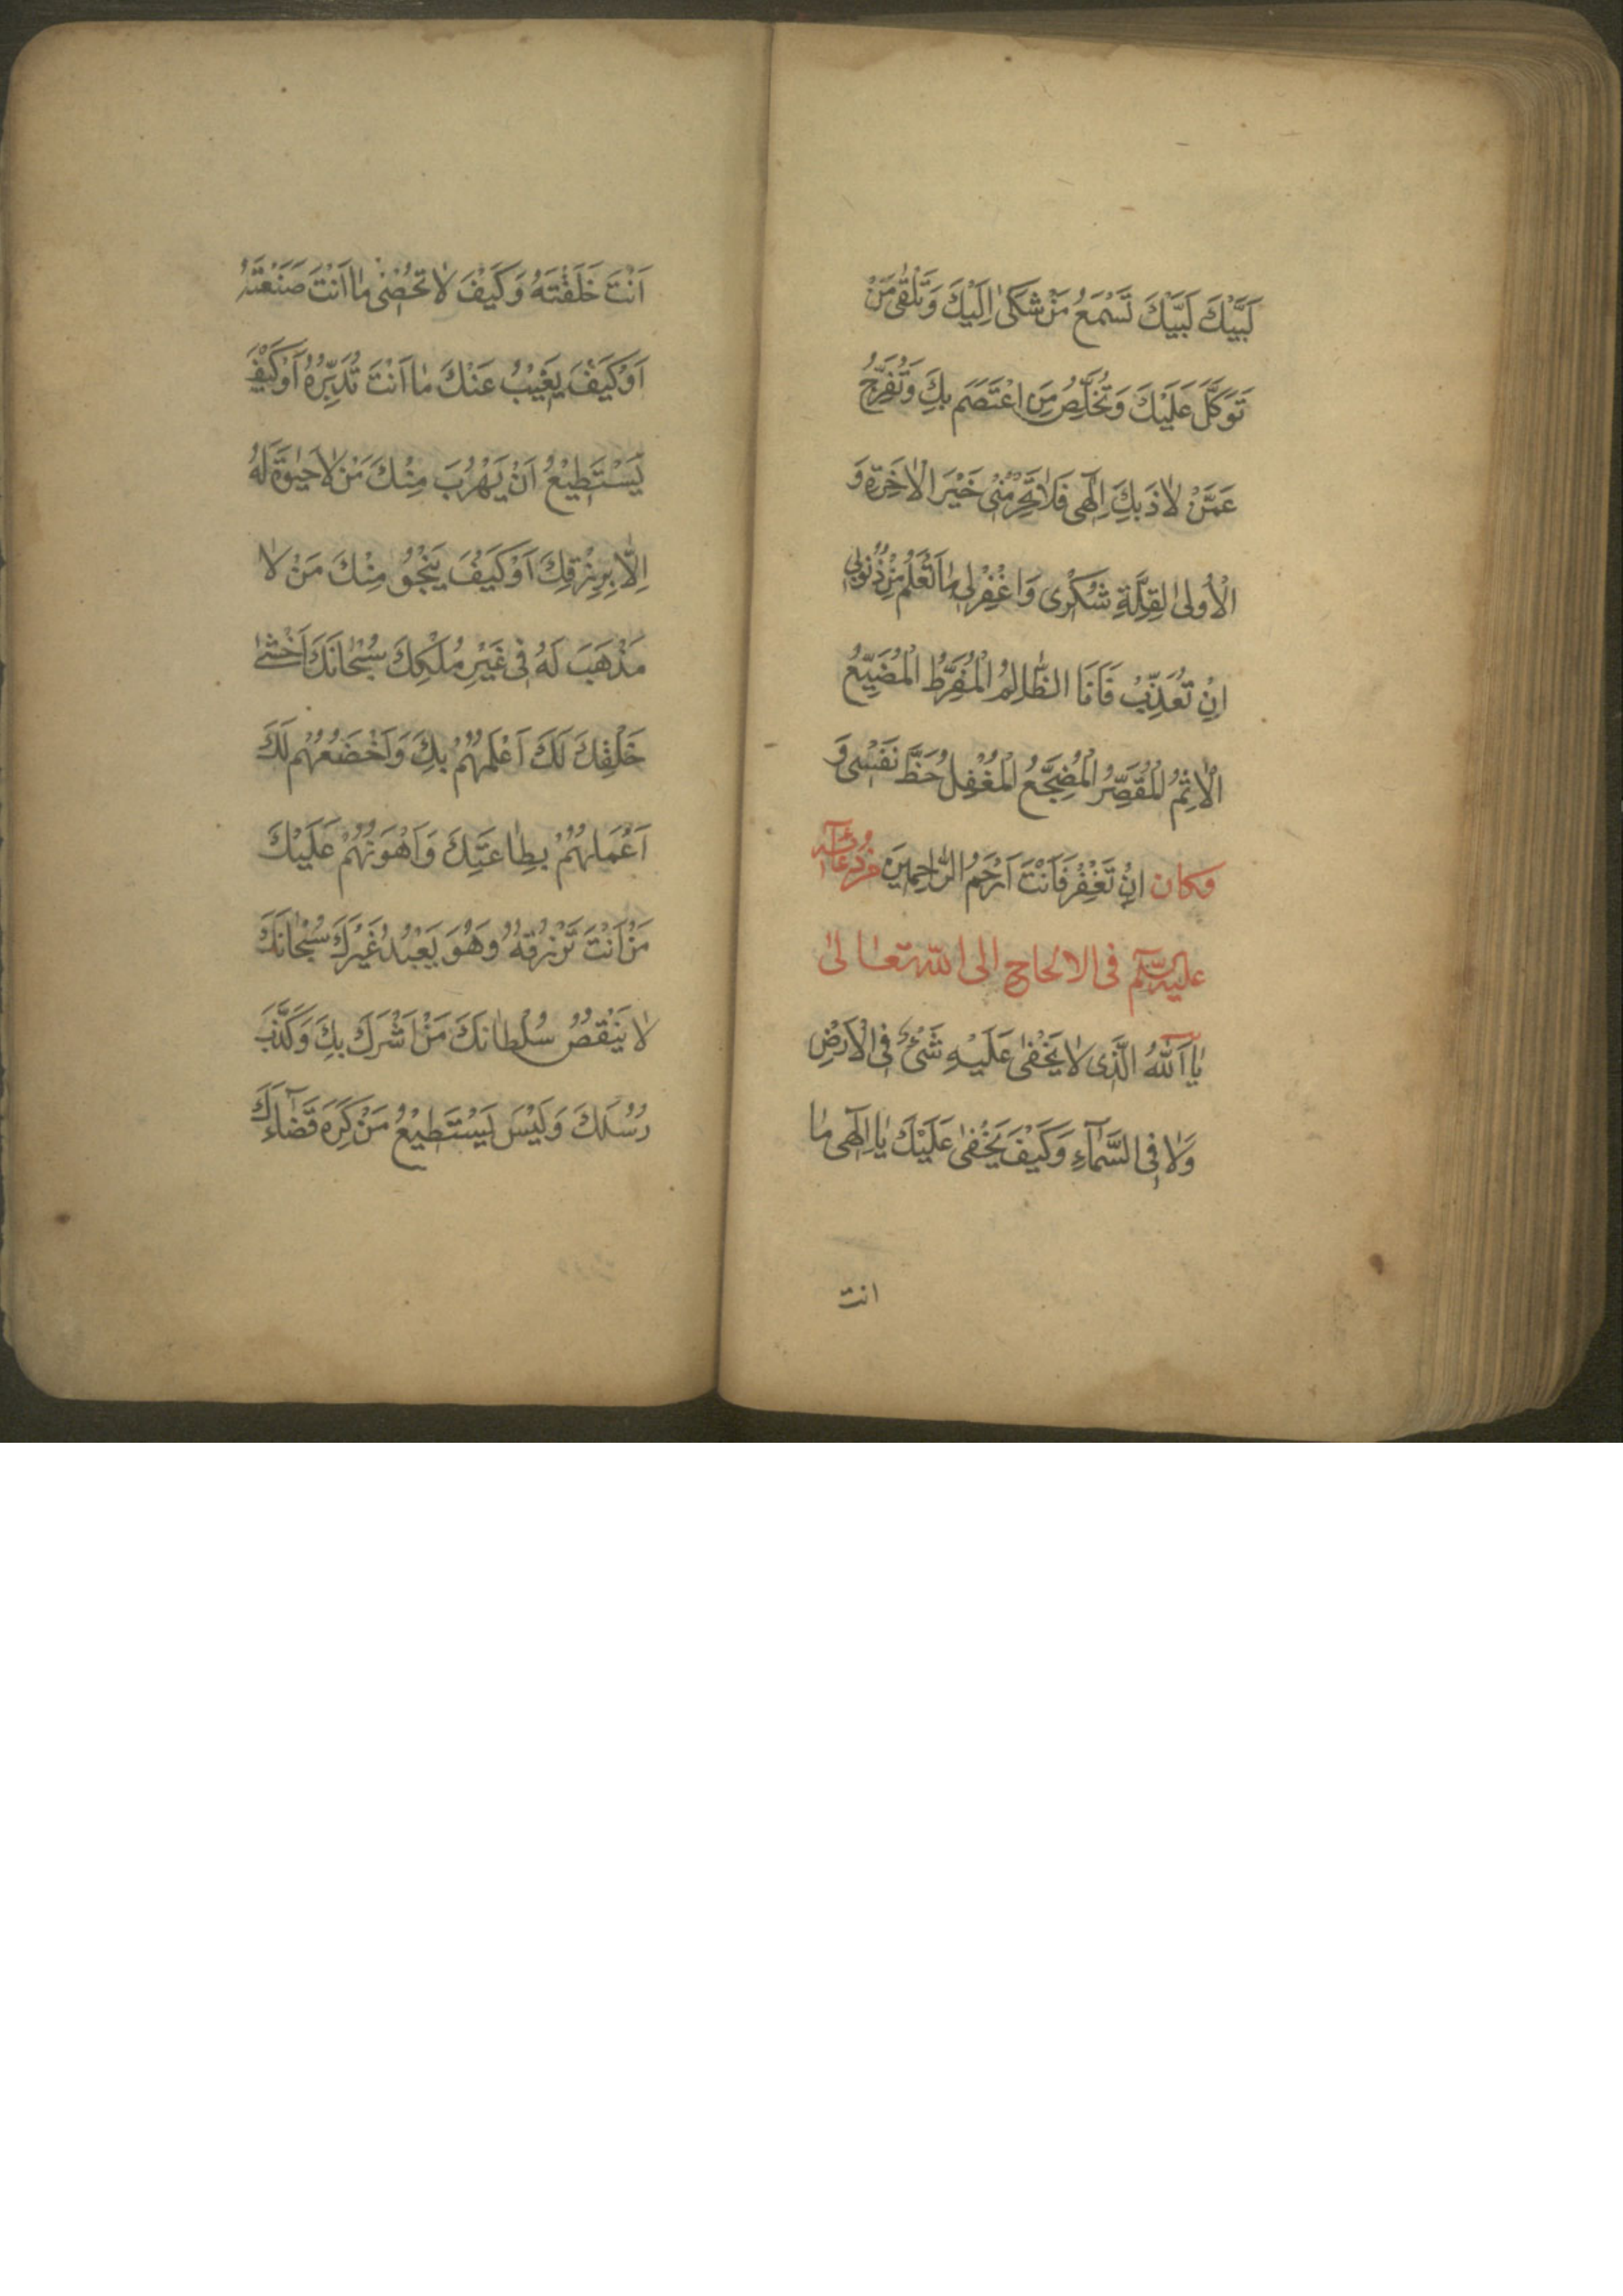 لَبَّيْكَ لَبَّيْكَ تَسْمَعُ مَنْ شَكٰى اِلَيْكَ وَتَلْقٰى مَنْ
تَوَكَّلَ عَلَيْكَ وَتُخَلِّصُ مَنِ اعْتَصَمَ بِكَ وَتُفَرِّجُ
عَمَّنْ لٰاذَ بِكَ اِلٰهٓى فَلٰا تَحْرِمْنٖى خَيْرَ الْاٰخِرَةِ وَ
الْاُولٰى لِقِلَّةِ شُكْرٖى وَاغْفِرْ لٖى مٰا تَعْلَمُ مِنْ ذُنُوبٖى
اِنْ تُعَذِّبْ فَاَنَا الظّٰالِمُ الْمُفَرِّطُ الْمُضَيِّعُ
الْاٰثِمُ الْمُقَصِّرُ الْمُضَجِّعُ الْمُغْفِلُ حَظَّ نَفْسٖى وَ
اِنْ تَغْفِرْ فَاَنْتَ اَرْحَمُ الرّٰاحِمٖينَ وكان من دُعَائِهٖ
عليه السّلم فى الالحاح الى اللّه تعٰالىٰ
يٰٓا اَللّٰهُ الَّذٖى لٰا يَخْفٰى عَلَيْهِ شَىْءٌ فِى الْاَرْضِ
وَلٰا فِى السَّمٰٓاءِ وَكَيْفَ يَخْفٰى عَلَيْكَ يٰا اِلٰهٓى مٰا
انت
اَنْتَ خَلَقْتَهُ وَكَيْفَ لٰا تُحْصٖى مٰا اَنْتَ صَنَعْتَهُ
اَوْ كَيْفَ يَغٖيبُ عَنْكَ مٰا اَنْتَ تُدَبِّرُهُ اَوْ كَيْفَ
يَسْتَطٖيعُ اَنْ يَهْرُبَ مِنْكَ مَنْ لٰا حَيٰوةَ لَهُ
اِلّٰا بِرِزْقِكَ اَوْ كَيْفَ يَنْجُو مِنْكَ مَنْ لٰا
مَذْهَبَ لَهُ فٖى غَيْرِ مُلْكِكَ سُبْحٰانَكَ اَخْشٰى
خَلْقِكَ لَكَ اَعْلَمُهُمْ بِكَ وَاَخْضَعُهُمْ لَكَ
اَعْمَلُهُمْ بِطٰاعَتِكَ وَاَهْوَنُهُمْ عَلَيْكَ
مَنْ اَنْتَ تَرْزُقُهُ وَهُوَ يَعْبُدُ غَيْرَكَ سُبْحٰانَكَ
لٰا يَنْقُصُ سُلْطٰانَكَ مَنْ اَشْرَكَ بِكَ وَكَذَّبَ
رُسُلَكَ وَلَيْسَ يَسْتَطٖيعُ مَنْ كَرِهَ قَضٰٓاءَكَ